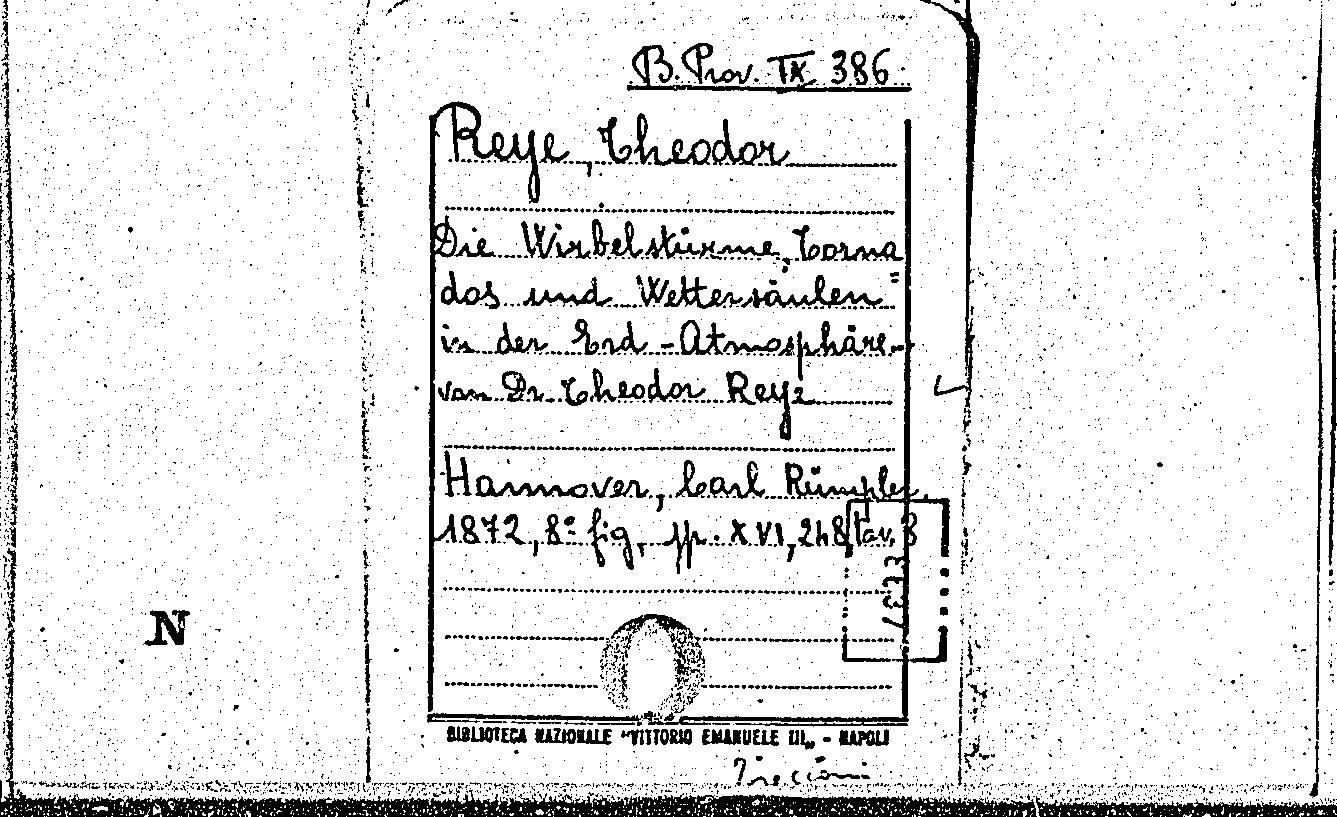 B. Prov. IX 386
Reye, Theodor
Die Wirbelstürme, Torna
dos und Wettersäulen
in der Erd-Atmosphäre.-
von Dr. Theodor Reye
Hannover, Carl Rümpler,
1872, 8° fig, pp. XVI, 248, tav. 3
N
BIBLIOTECA NAZIONALE "VITTORIO EMANUELE III„ - NAPOLI